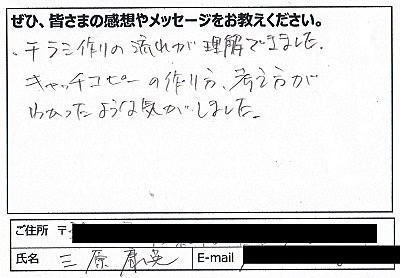 ぜひ、皆さまの感想やメッセージをお教えください。
・チラシ作りの流れが理解できました。
キャッチコピーの作り方、考え方が
わかったような気がしました。
ご住所 〒
氏名 三原 康 E-mail